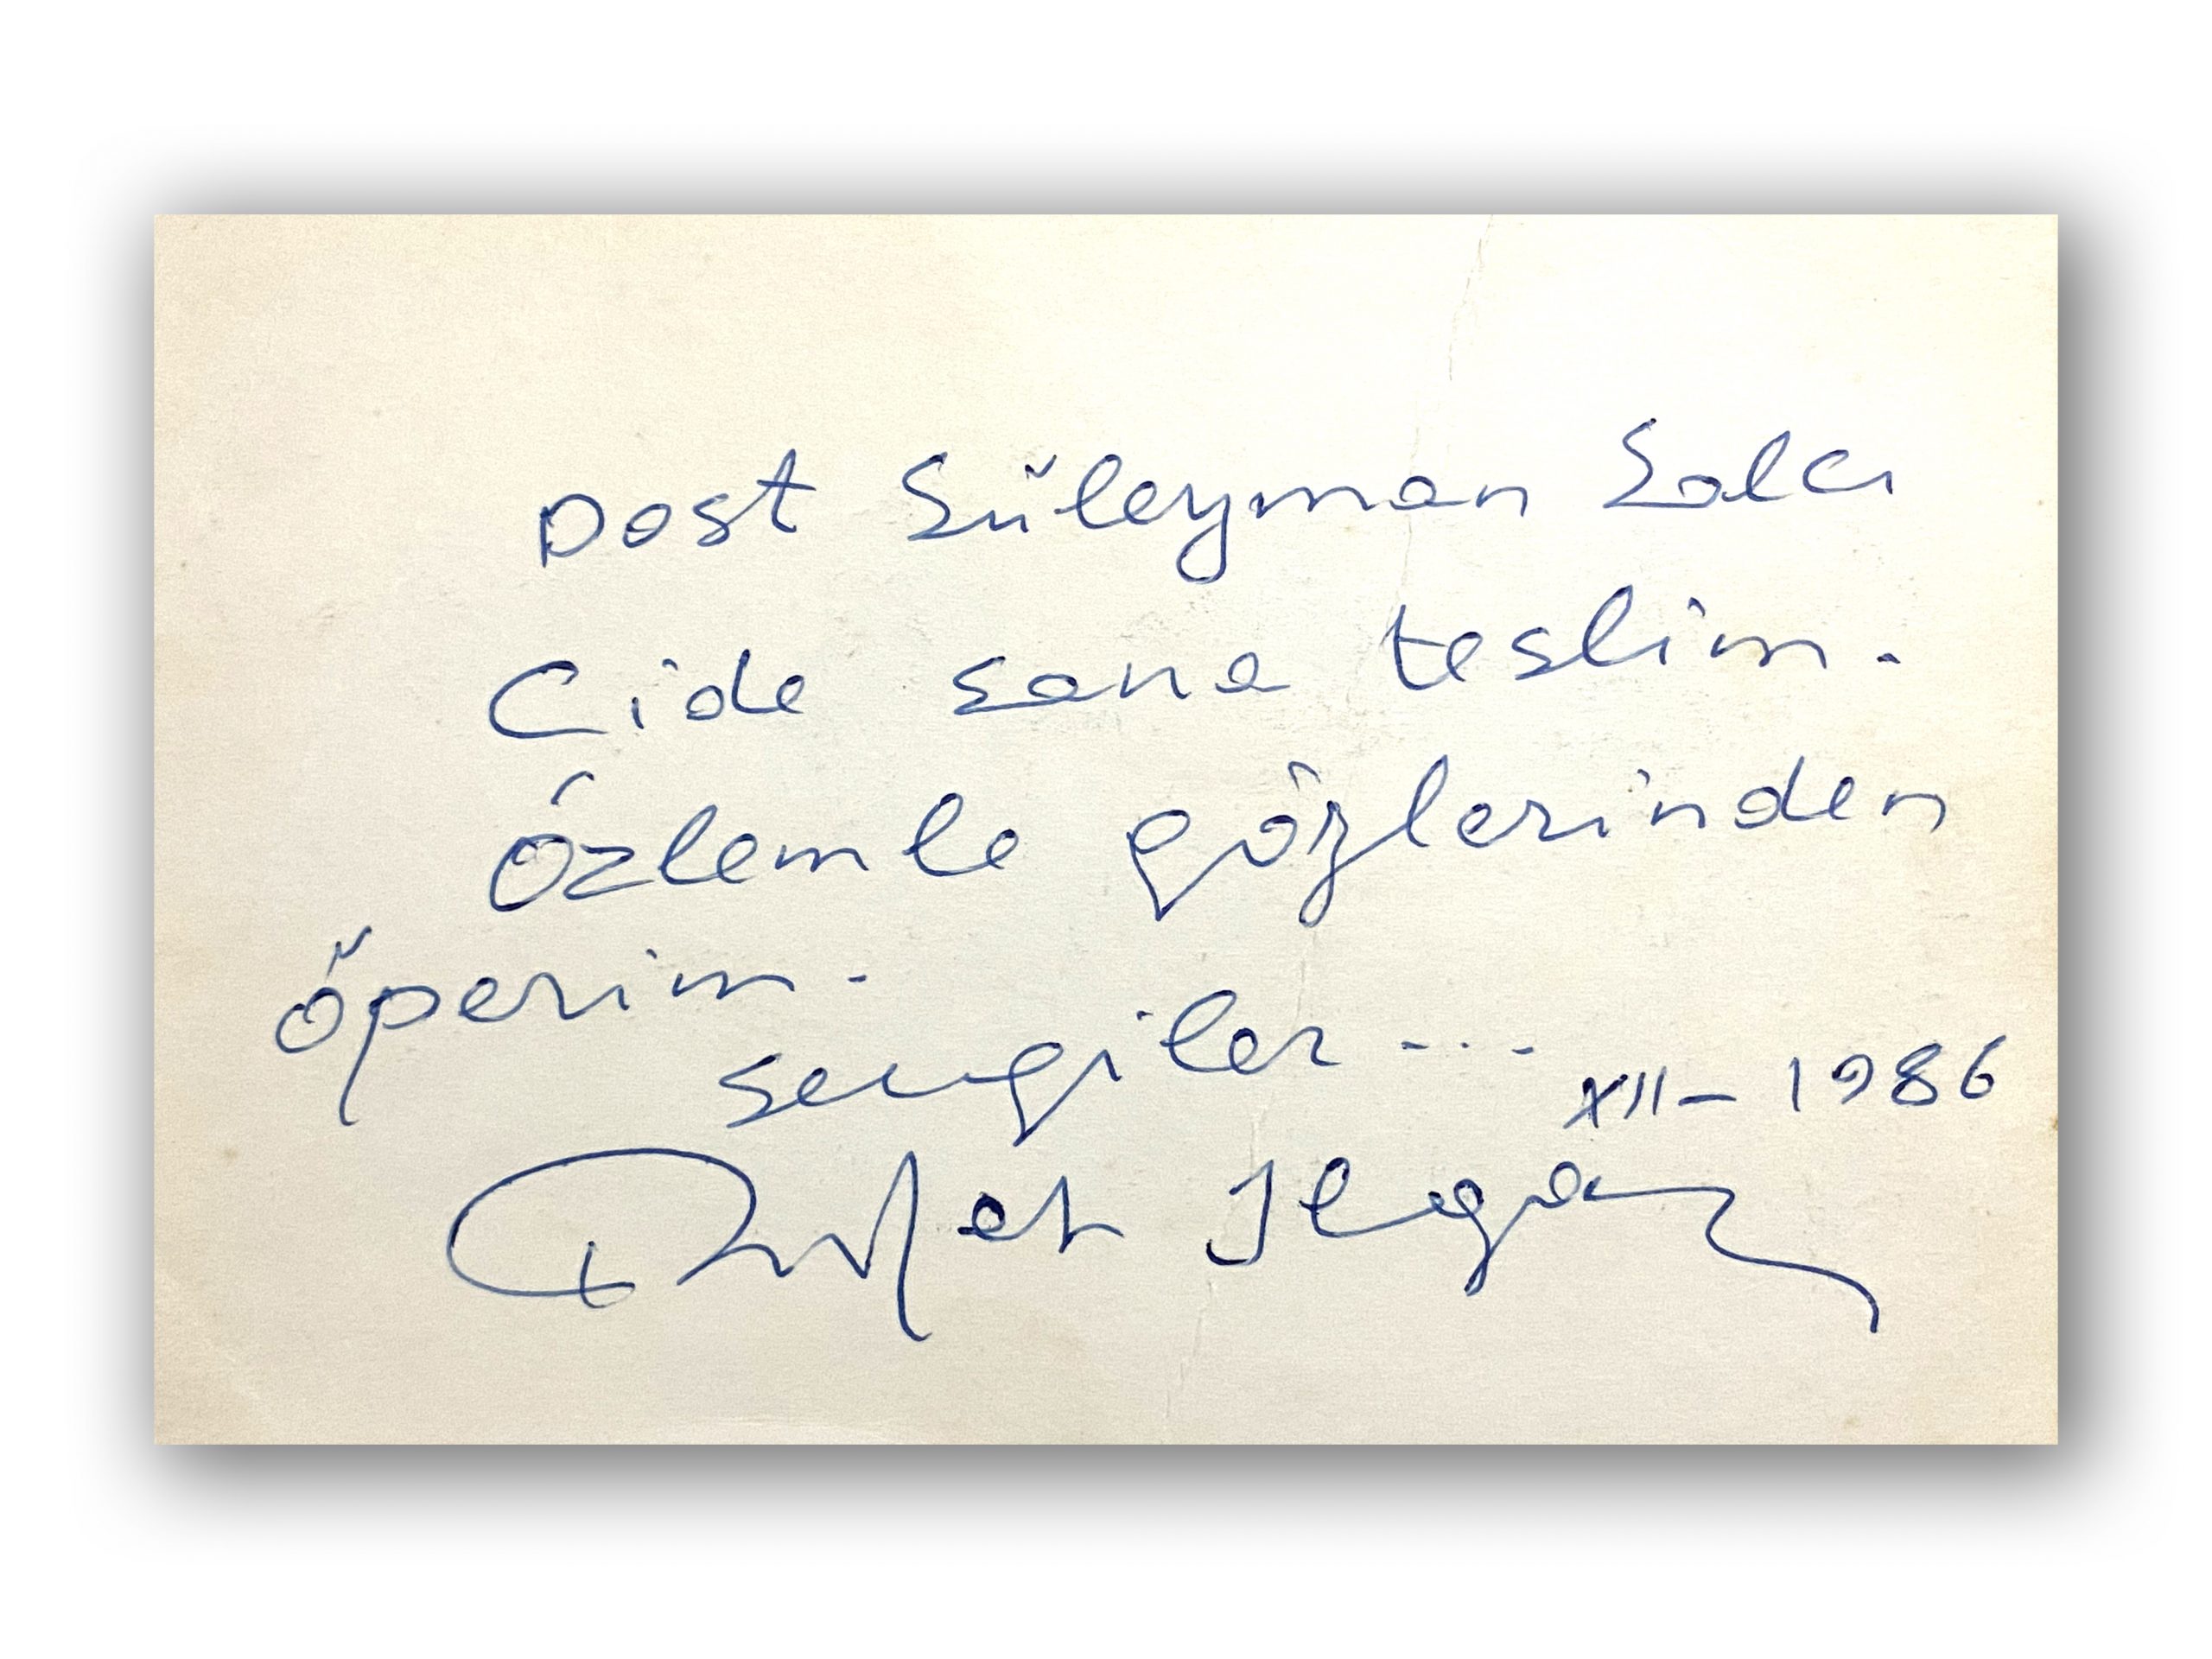 Dost Süleyman Salcı
Cide sana teslim.
Özlemle gözlerinden
öperim.
sevgiler...
XII-1986
Rıfat Ilgaz